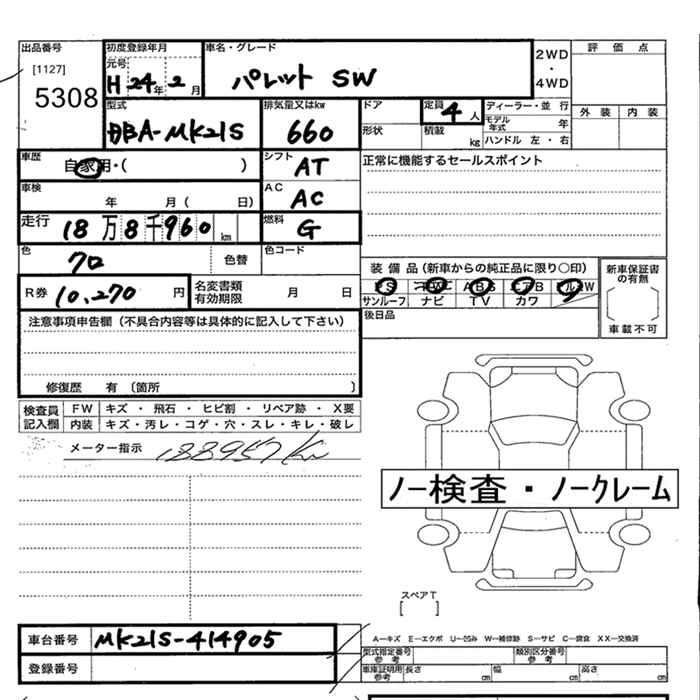 出品番号 [1127] 5308
初度登録年月 元号 H 24年 2月
車名・グレード パレット SW
2WD・4WD
評価点
外装 内装
型式 DBA-MK21S
排気量又はkw 660
ドア 形状
定員 4人 積載 kg
ディーラー・並行
モデル年式 年
ハンドル 左・右
車歴 自家用・( )
シフト AT
正常に機能するセールスポイント
車検 年 月( 日)
AC AC
走行 18万8千960km
燃料 G
色 クロ 色替
色コード
装備品(新車からの純正品に限り○印)
PS PW ABS エアB ルSW
サンルーフ ナビ TV カワ
新車保証書の有無
[ ]
車載不可
R券 10,270円
名変書類有効期限 月 日
後日品
注意事項申告欄(不具合内容等は具体的に記入して下さい)
修復歴 有〔箇所 〕
検査員記入欄
FW キズ・飛石・ヒビ割・リペア跡・X要
内装 キズ・汚レ・コゲ・穴・スレ・キレ・破レ
メーター指示 188957Km
ノー検査・ノークレーム
スペアT
[ ]
車台番号 MK21S-414905
登録番号
A－キズ E－エクボ U－凹み W－補修跡 S－サビ C－腐食 XX－交換済
型式指定番号 参考
類別区分番号 参考
車庫証明用参考 長さ cm 幅 cm 高さ cm